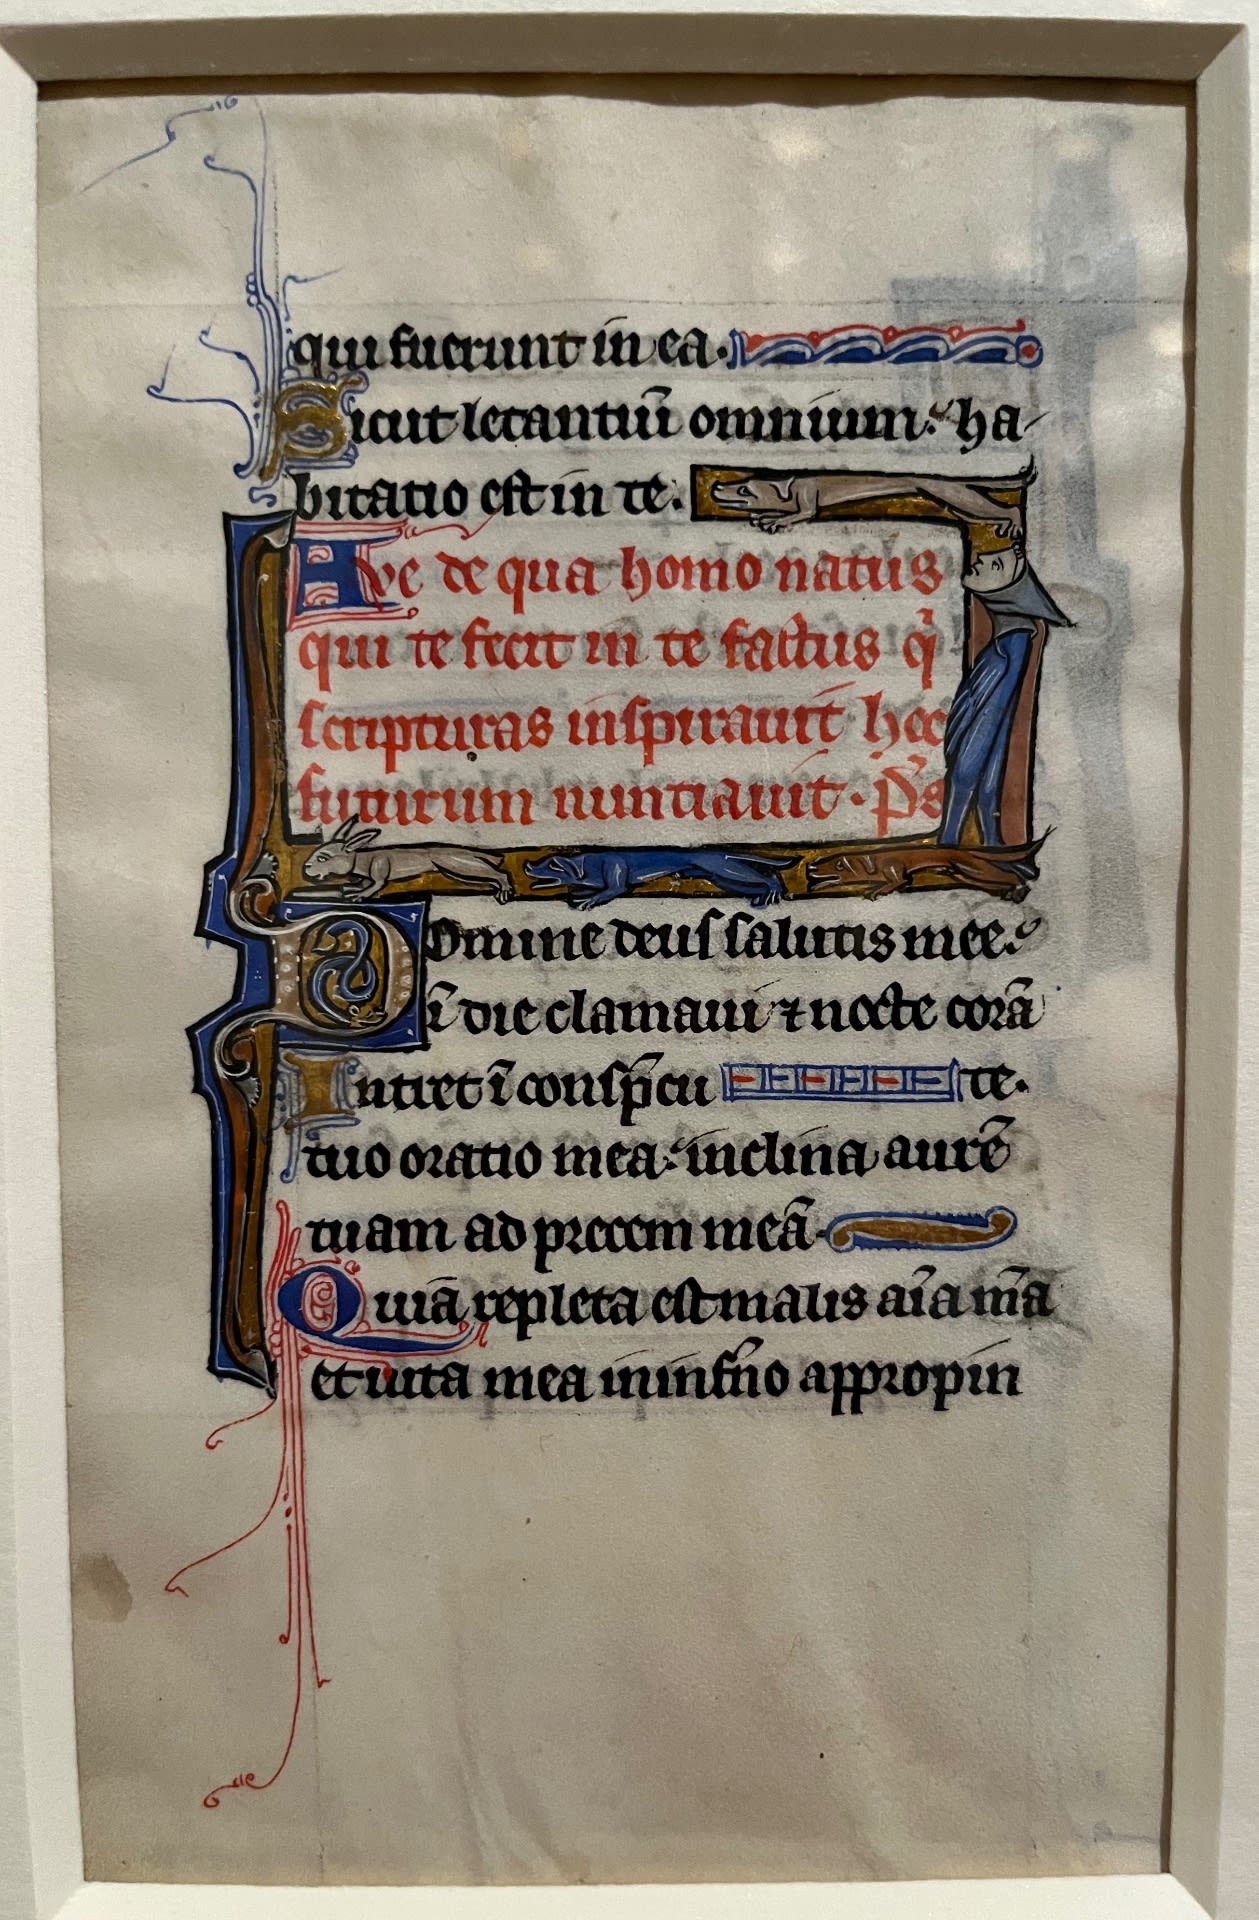 qui fuerunt in ea.
Sicut letantiū omnium: ha-
bitatio est in te.
Ave de qua homo natus
qui te fecit in te factus q̇
scripturas inspirauit hoc
futurum nuntiauit. P̄s
Domine deus salutis mee:
ī die clamaui ⁊ nocte corā
Intret ī conspc̄u te.
tuo oratio mea: inclina aurē
tuam ad precem meā.
Quiā repleta est malis aīa m̄a
et uita mea in inf̄no appropin